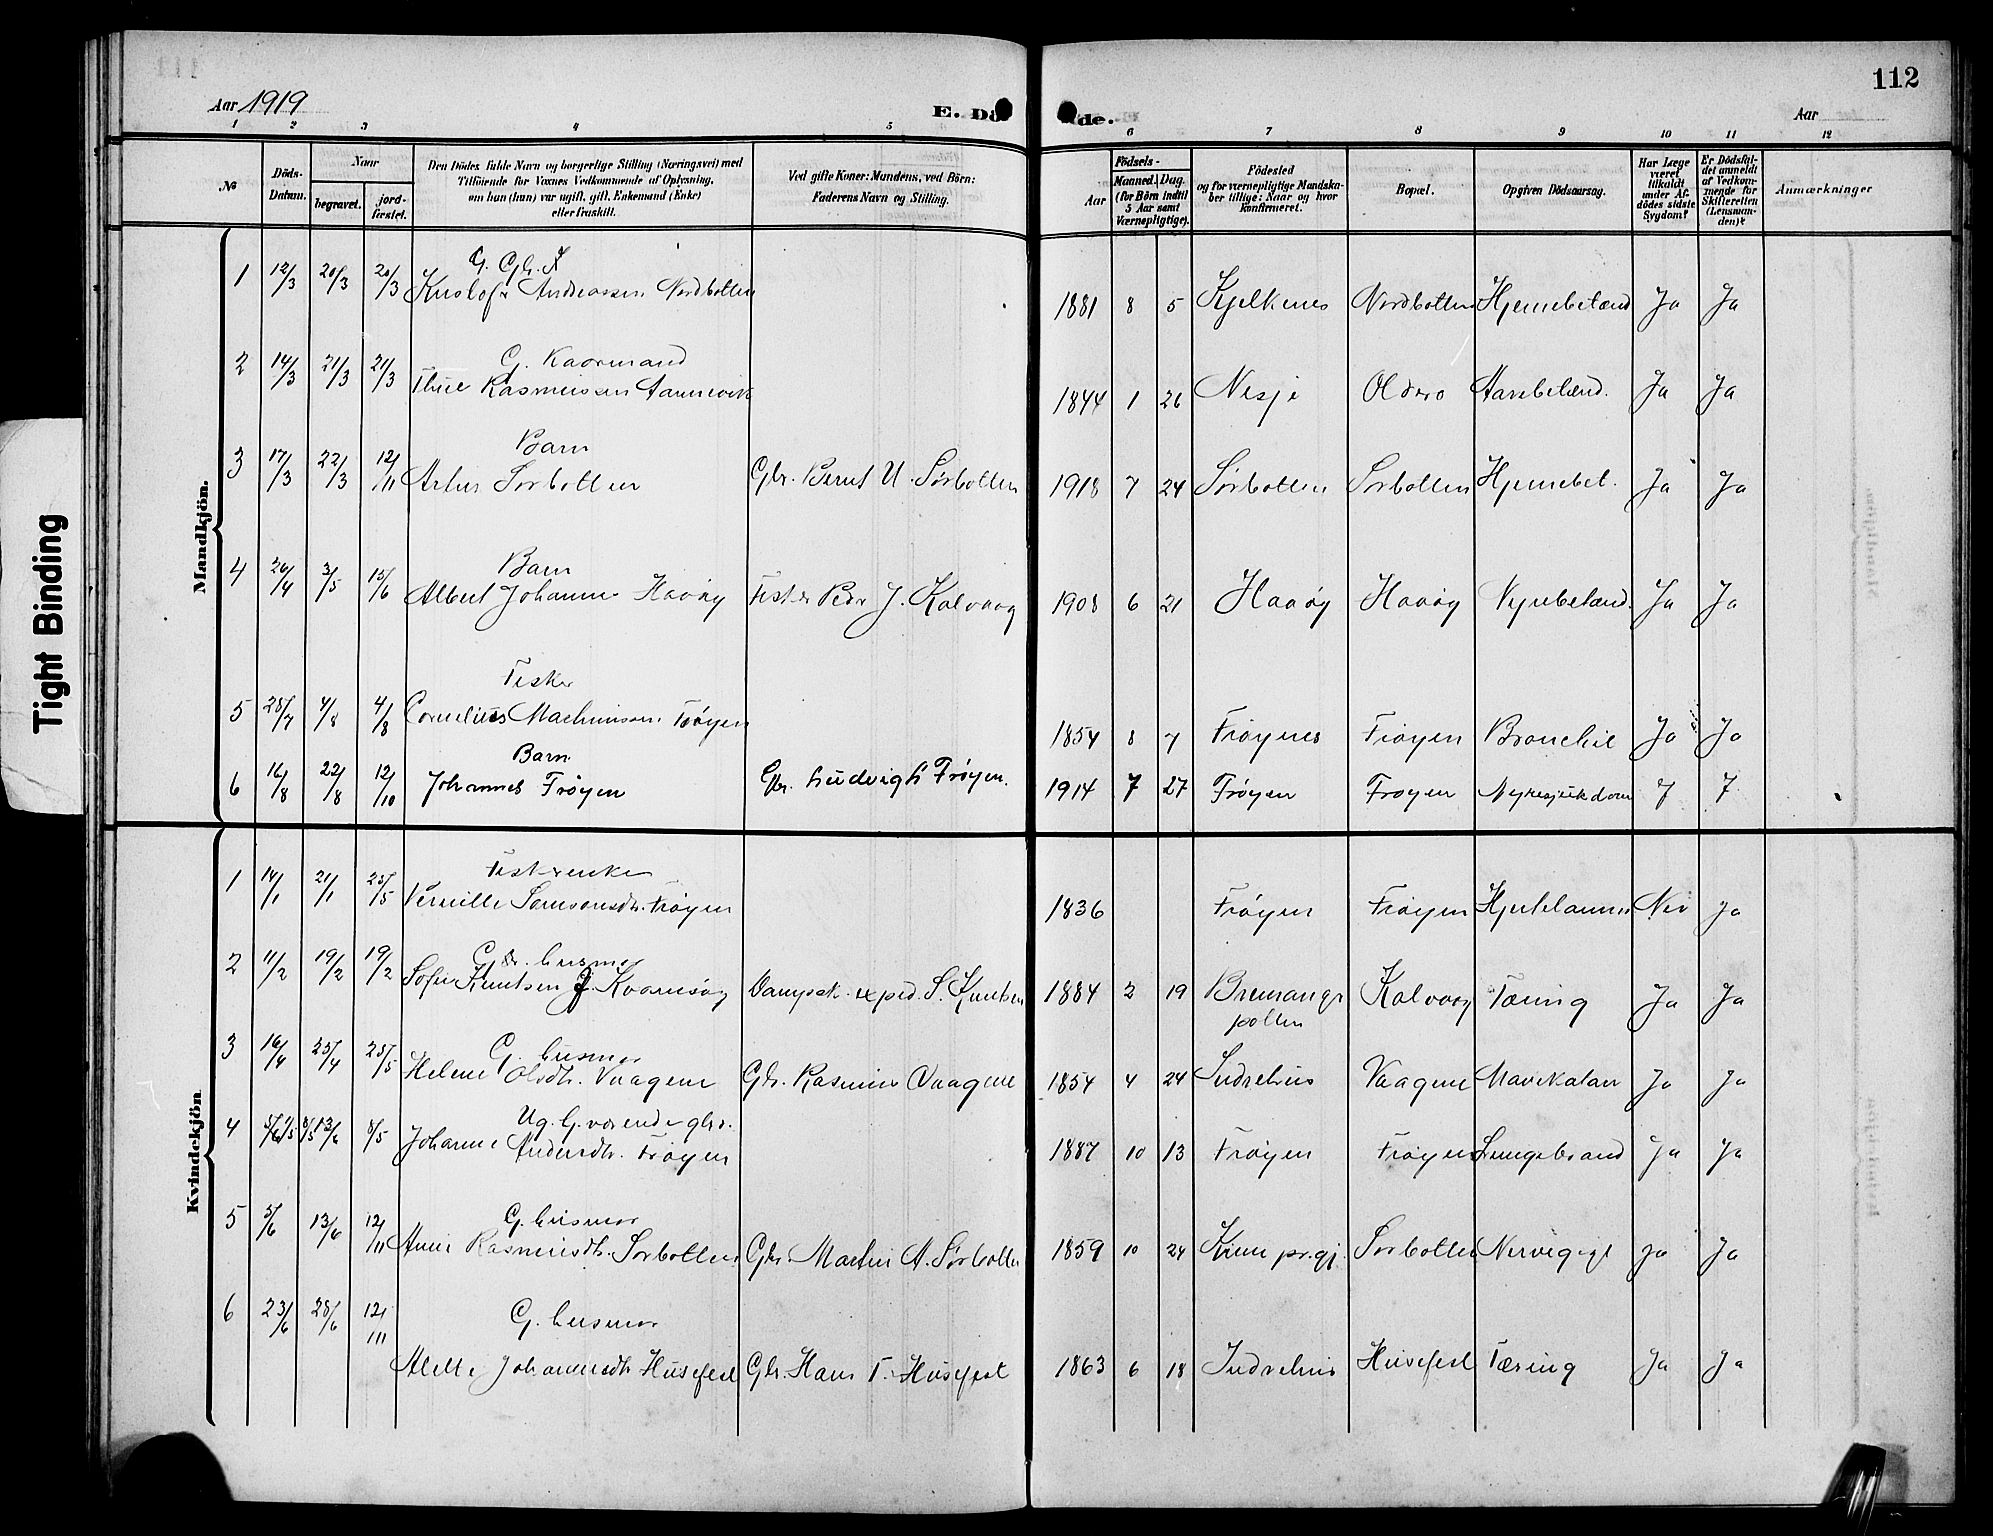 112
Aar 1919
E. Dö de.
Aar
1 2 3 4 5 6 7 8 9 10 11 12
No
Döds-Datum.
Naar
begravet.
jord-fæstet.
Den Dödes fulde Navn og borgerlige Stilling (Næringsvei) med
Tilföiende for Voxnes Vedkommende af Oplysning,
om han (hun) var ugift, gift, Enkemand (Enke)
eller fraskilt.
Ved gifte Koner: Mandens, ved Börn:
Faderens Navn og Stilling.
Födsels-
Aar
Maaned. Dag.
(for Börn indtil
5 Aar samt
Værnepligtige).
Födested
og for værnepligtige Mandska-
ber tillige: Naar og hvor
konfirmeret.
Bopæl.
Opgiven Dödsaarsag.
Har Læge
været
tilkaldt
under Af-
dödes sidste
Sygdom?
Er Dödsfal-
det anmeldt
af Vedkom-
mende for
Skifteretten
(Lensman-
den)?
Anmærkninger
Tight Binding
Mandkjön.
G. Gbr.
1 12/3 20/3 20/3 Kristofr Andreassen Nordbotten 1881 8 5 Kjelkenes Nordbotten Hjernebetænd Ja Ja
G. Kaarmand
2 14/3 21/3 21/3 Thue Rasmussen Aannevik 1844 1 26 Nesje Oldero betænd. Ja Ja
Barn
3 17/3 22/3 12/11 Artur Sørbotten Gbr. Bernt U. Sørbotten 1918 7 24 Sørbotten Sørbotten Hjernebet. Ja Ja
Barn
4 26/4 3/5 15/6 Albert Johannes Havøy Fisker Peder J. Kalvaag 1908 6 21 Havøy Havøy Nyrebetænd. Ja Ja
Fisker
5 28/7 4/8 4/8 Cornelius Frøyen 1854 8 7 Frøynes Frøyen Bronchit Ja Ja
Barn
6 16/8 22/8 12/10 Johannes Frøyen Gbr. Ludvig L. Frøyen. 1914 7 27 Frøyen Frøyen Nyresjukdom J J
Kvindekjön
Fiskerenke
1 14/1 21/1 25/5 Pernille Samsonsdtr. Frøyen 1836 Frøyen Frøyen Hjertelammels Nei Ja
Gbr. husmor
2 11/2 19/2 19/2 Sofie Knutsen f. Kvamsøy Dampsk. exped. S. Knutsen 1884 2 19 Bremanger
pollen Kalvaag Tæring Ja Ja
G. husmor
3 16/4 25/4 25/5 Helene Olsdtr. Vaagene Gbr. Rasmus Vaagene 1854 4 24 Indrehus Vaagene Mavekatar Ja Ja
Ug. G. værende gbr.
4 13/6 8/5 Johanne Andersdtr. Frøyen 1887 10 13 Frøyen Frøyen Lungebrand Ja Ja
G. husmor
5 5/6 13/6 12/11 Anne Rasmusdtr. Sørbotten Gbr. Martin A. Sørbotten 1859 10 24 Kinn pr.gj. Sørbotten Nervegigt Ja Ja
G. husmor
6 23/6 28/6 12/11 Alette Johannesdtr Husefest Gbr. Hans T. Husefest 1863 6 18 Indrehus Husefest Tæring Ja Ja